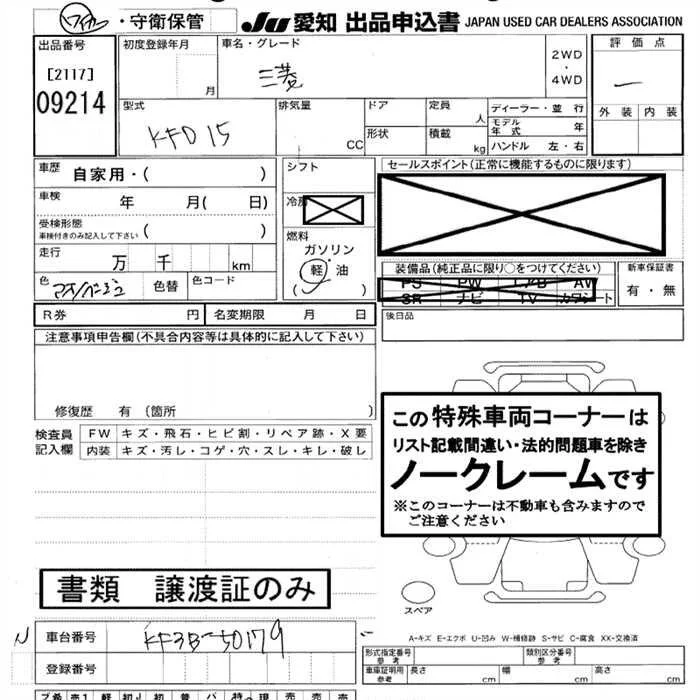 ・守衛保管 JU 愛知 出品申込書 JAPAN USED CAR DEALERS ASSOCIATION
出品番号 初度登録年月 車名・グレード 評価点
[2117] 月 三菱 2WD ・ 4WD
09214 外装 内装
型式 排気量 ドア 定員 人 ディーラー・並行
KFD 15 CC 形状 積載 kg モデル年式 年
ハンドル 左・右
車歴 自家用・( ) シフト セールスポイント(正常に機能するものに限ります)
車検 年 月( 日)
受検形態 車検付きのみ記入して下さい ( )
燃料
走行 万 千 km ガソリン
色 色替 色コード (軽・油 装備品(純正品に限り○をつけてください) 新車保証書
PS PW AW 有・無
SR ナビ TV カワシート
R券 円 名変期限 月 日 後日品
注意事項申告欄(不具合内容等は具体的に記入して下さい)
修復歴 有 (箇所 )
この特殊車両コーナーは
リスト記載間違い・法的問題車を除き
ノークレームです
※このコーナーは不動車も含みますので
ご注意ください
検査員記入欄 FW キズ・飛石・ヒビ割・リペア跡・X要
内装 キズ・汚レ・コゲ・穴・スレ・キレ・破レ
書類 譲渡証のみ
スペア
A-キズ E-エクボ U-凹み W-補修跡 S-サビ C-腐食 XX-交換済
N 車台番号 KF3B-50179
登録番号
型式指定番号 参考 類別区分番号 参考
車庫証明用 参考 長さ cm 幅 cm 高さ cm